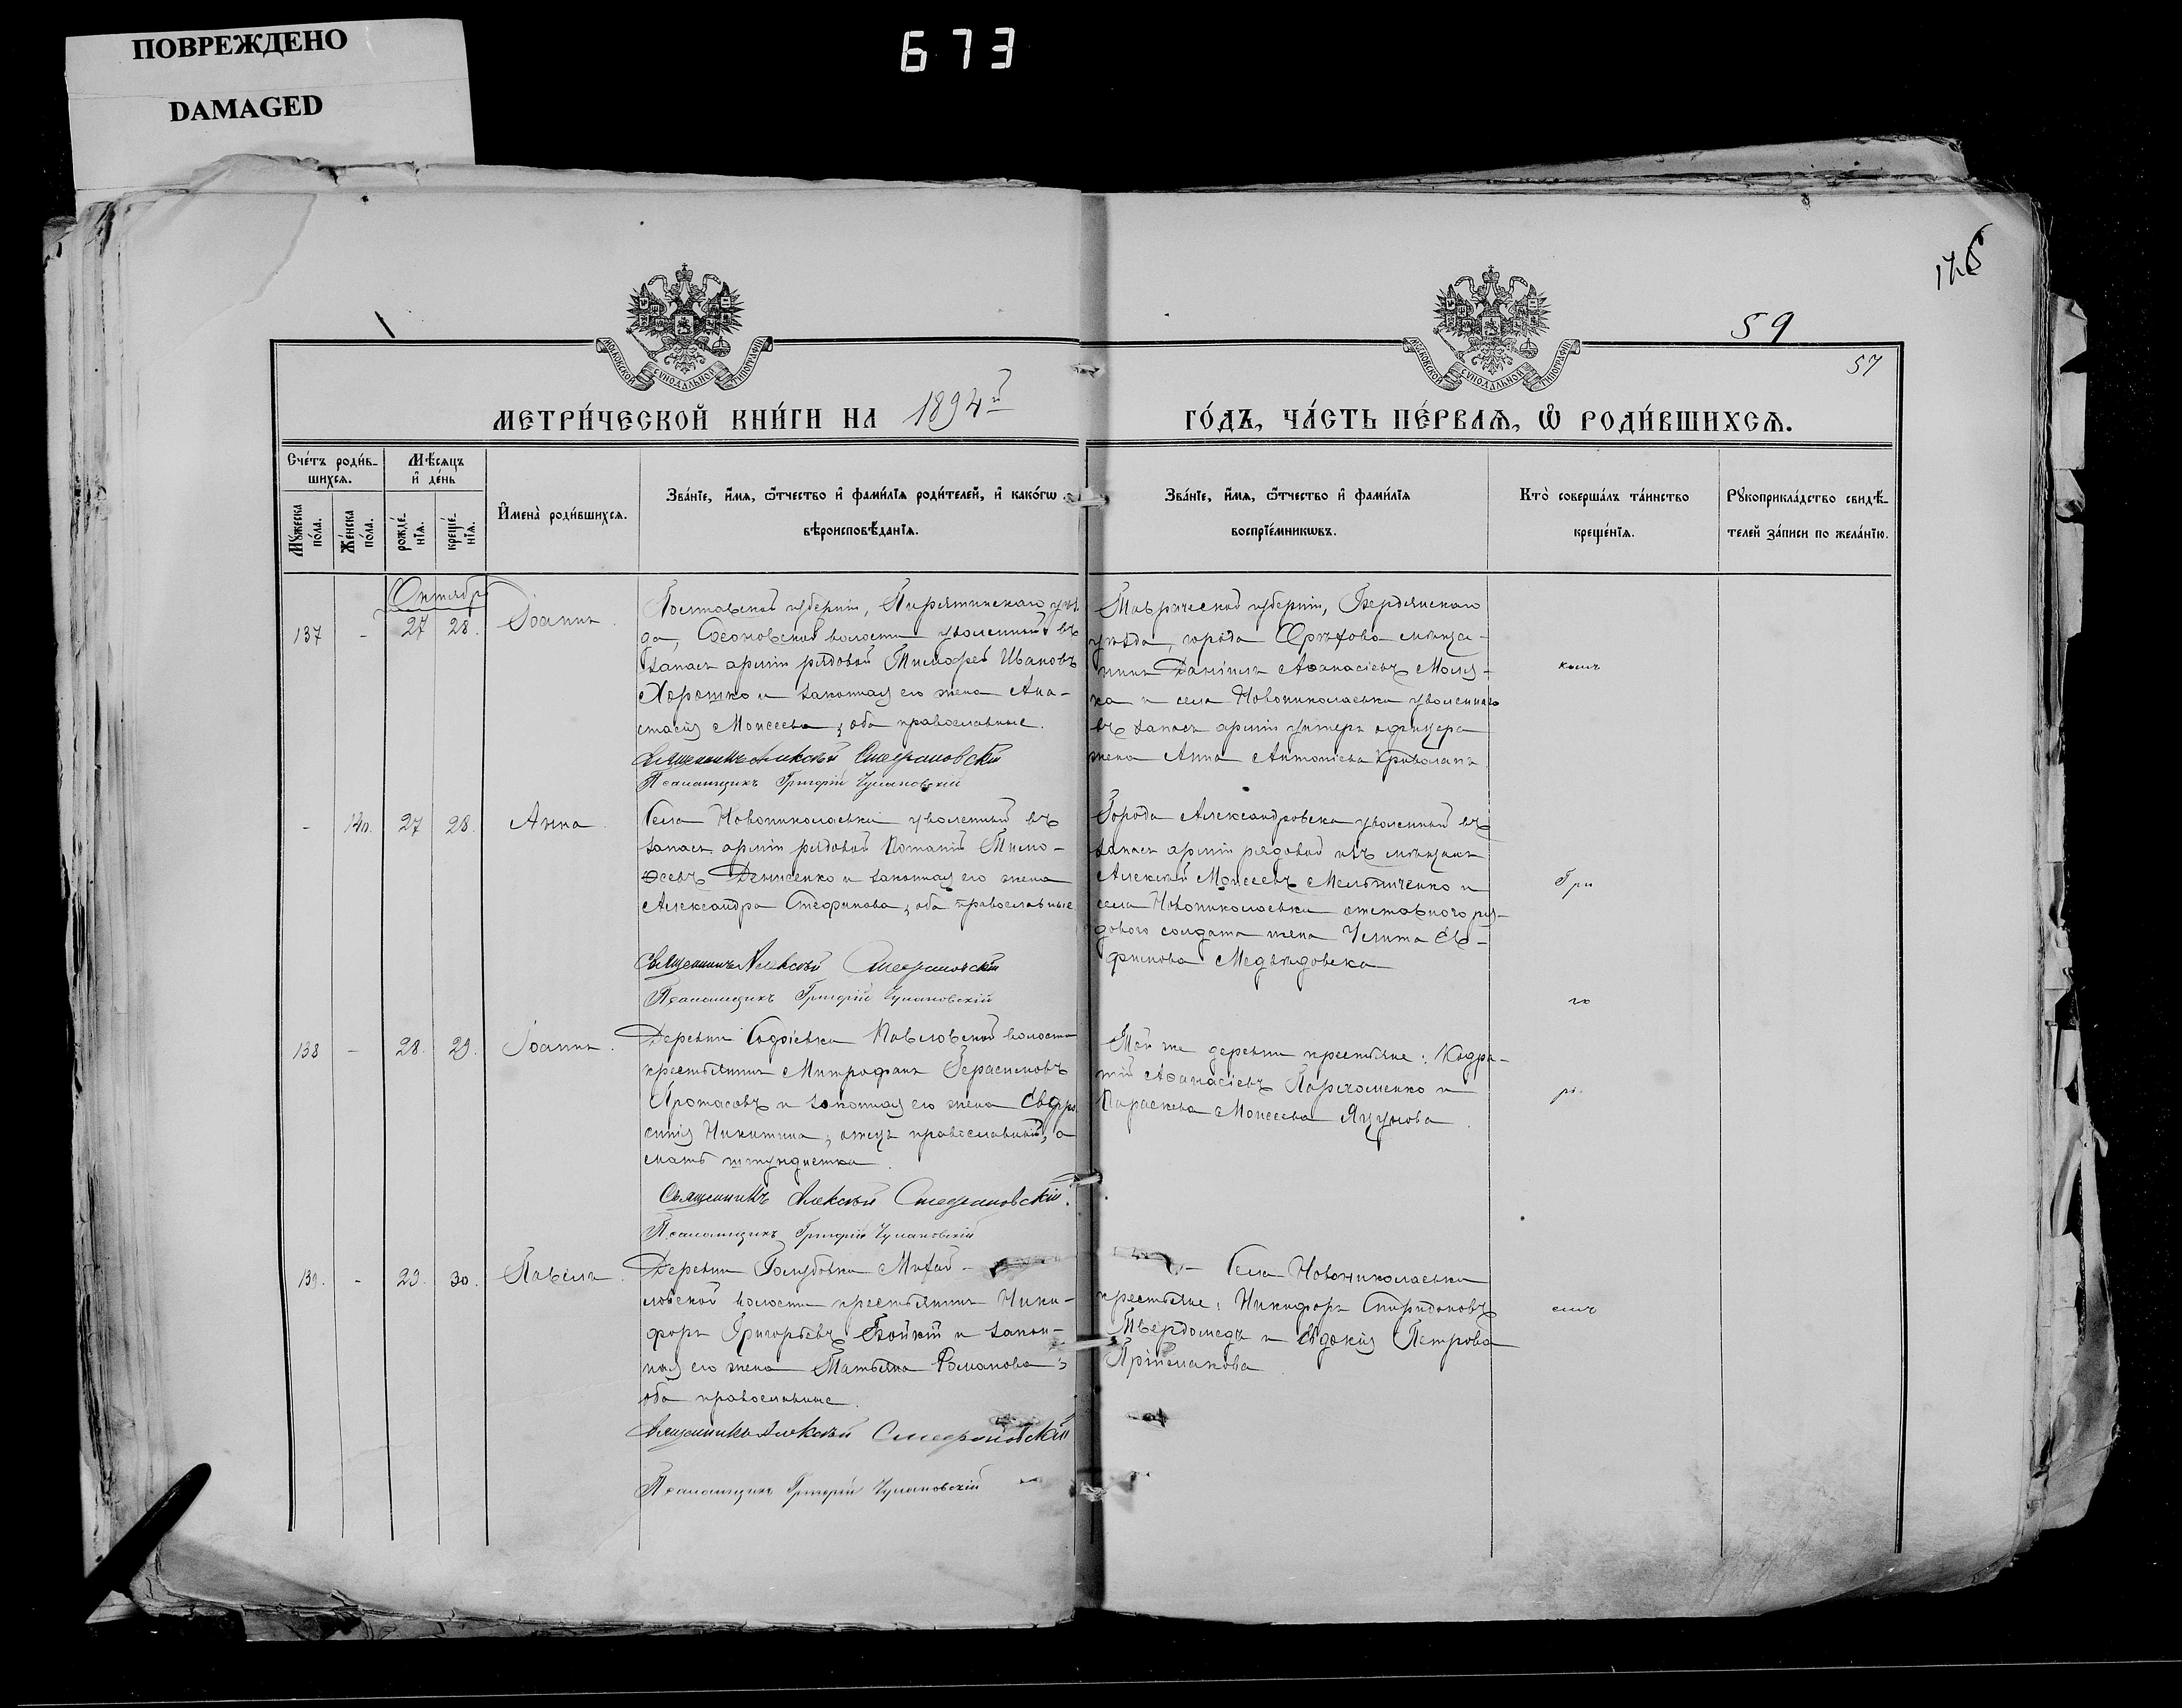 ПОВРЕЖДЕНО
DAMAGED
673
59
57
МОСКОВСКОЙ СУНОДАЛЬНОЙ ТИПОГРАФІИ
МОСКОВСКОЙ СУНОДАЛЬНОЙ ТИПОГРАФІИ
МЕТРИ́ЧЕСКОЙ КНИ́ГИ НА 1894й
ГО́ДЪ, ЧА́СТЬ ПЕ́РВАѦ, Ѽ РОДИ́ВШИХСѦ.
Сче́тъ роди́в-
шихсѧ.
Мѣ́сѧцъ
и҆ де́нь
Мꙋ́жеска по́ла.
Же́нска по́ла.
рожде́-
нїѧ.
креще́-
нїѧ.
И҆мена̀ роди́вшихсѧ.
Зва́нїе, и҆́мѧ, ѻ҆́тчество и҆ фами́лїѧ роди́телей, и҆ како́гѡ
вѣроисповѣ́данїѧ.
Зва́нїе, и҆́мѧ, ѻ҆́тчество и҆ фами́лїѧ
воспрїе́мникѡвъ.
Кто̀ соверша́лъ та́инство
креще́нїѧ.
Рꙋкоприкла́дство свидѣ́-
телей за́писи по жела́нїю.
Октябрь
137 - 27 28. Іоаннъ.
Полтавской губерніи, Пирятинскаго уѣз
да, волости уволенный въ
запасъ арміи рядовой Тимофей Ивановъ
Хорошко и законная его жена Ана-
стасія Моисеева; оба православные.
Священникъ Алексѣй Стефановскій
Псаломщикъ Григорій Чулановскій
Таврической губерніи, Бердянскаго
уѣзда, города Орѣхова мѣща-
нинъ Даніилъ Аѳанасіевъ
и села Новониколаевки уволеннаго
въ запасъ арміи унтеръ офицера
жена Анна Антоніева Криволапъ
- 140. 27 28. Анна
Села Новониколаевки уволенный въ
запасъ арміи рядовой Тимо-
ѳеевъ Денисенко и законная его жена
Александра Стефанова; оба православные
Священникъ Алексѣй Стефановскій
Псаломщикъ Григорій Чулановскій
Города Александровска уволенный въ
запасъ арміи рядовой изъ мѣщанъ
Алексѣй Моисеевъ Мельниченко и
села Новониколаевки отставного ря-
дового солдата жена Улита Ев-
фимова Медвѣдовска
138 - 28. 29. Іоаннъ.
Деревни Софіевки Павловской волости
крестьянинъ Митрофанъ Герасимовъ
Протасовъ и законная его жена Евфро
синія Никитина; отецъ православный, а
мать штундистка.
Священникъ Алексѣй Стефановскій.
Псаломщикъ Григорій Чулановскій
Той же деревни крестьяне: Кодра-
тій Аѳанасіевъ Пархоменко и
Параскева Моисеева Яцунова.
139. - 29. 30. Павелъ.
Деревни Голубовки Михай-
ловской волости крестьянинъ Ники-
форъ Григорьевъ Бойкій и закон-
ная его жена Татьяна Романова;
оба православные.
Священникъ Алексѣй Стефановскій
Псаломщикъ Григорій Чулановскій
Села Новониколаевки
крестьяне: Никифоръ Спиридоновъ
Твердомедъ и Евдокія Петрова